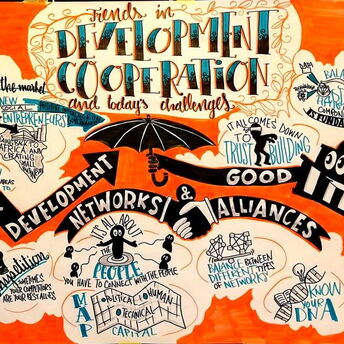 Trends in
DEVELOPMENT
COOPERATION
and today's challenges
the market
NEW
SOCIAL
ENTREPRENEURS
BACK TO
AFRICA AND
CREATING
SMALL
IT ALL COMES DOWN
TO
TRUST BUILDING
DATA
HARD
DEVELOPMENT
NETWORKS
&
GOOD
ALLIANCES
IT'S ALL ABOUT
THE
PEOPLE
YOU HAVE TO CONNECT WITH THE PEOPLE
SOMETIMES
YOUR COMPETITORS
ARE YOUR BEST ALLIES
MAP
POLITICAL
HUMAN
TECHNICAL
CAPITAL
BALANCE BETWEEN
DIFFERENT TYPES
OF NETWORKS
KNOW
YOUR
DNA